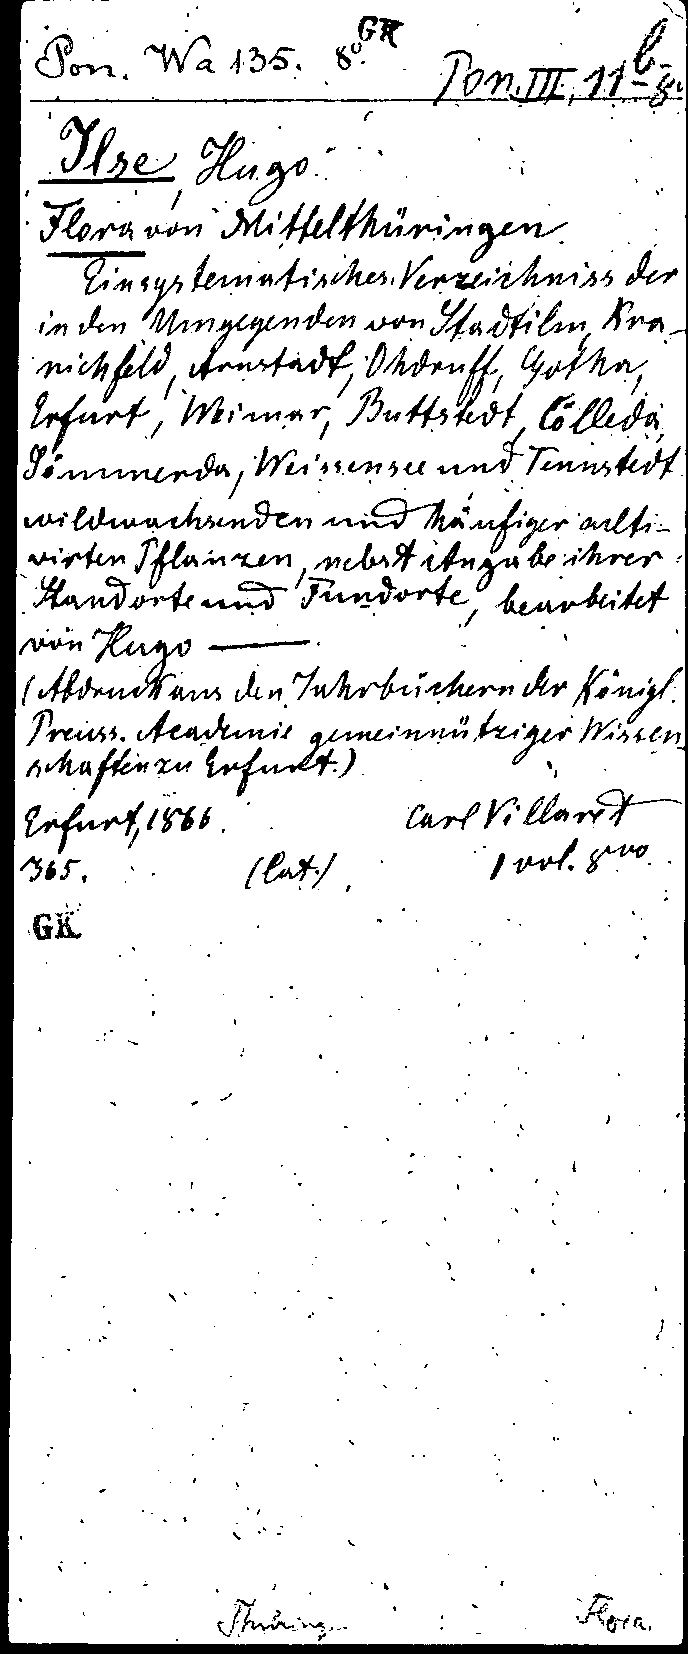 Pon. Wa 135. 8º. GK
Pon. III, 11 b- 8º
Ilse, Hugo.
Flora von Mittelthüringen.
Ein systematisches Verzeichniss der
in den Umgegenden von Stadtilm, Kra-
nichfeld, Arnstadt, Ohdruff, Gotha,
Erfurt, Weimar, Buttstedt, Cölleda,
Sömmerda, Weissensee und Tennstedt
wildwachsenden und häufiger culti-
virten Pflanzen, nebst Angabe ihrer
Standorte und Fundorte, bearbeitet
von Hugo ——.
(Abdruck aus den Jahrbüchern der Königl.
Preuss. Academie gemeinnütziger Wissen-
schaften zu Erfurt.)
Erfurt, 1866. Carl Villaret
365. (Cat.) 1 vol. 8vo
GK
Thüring. Flora.